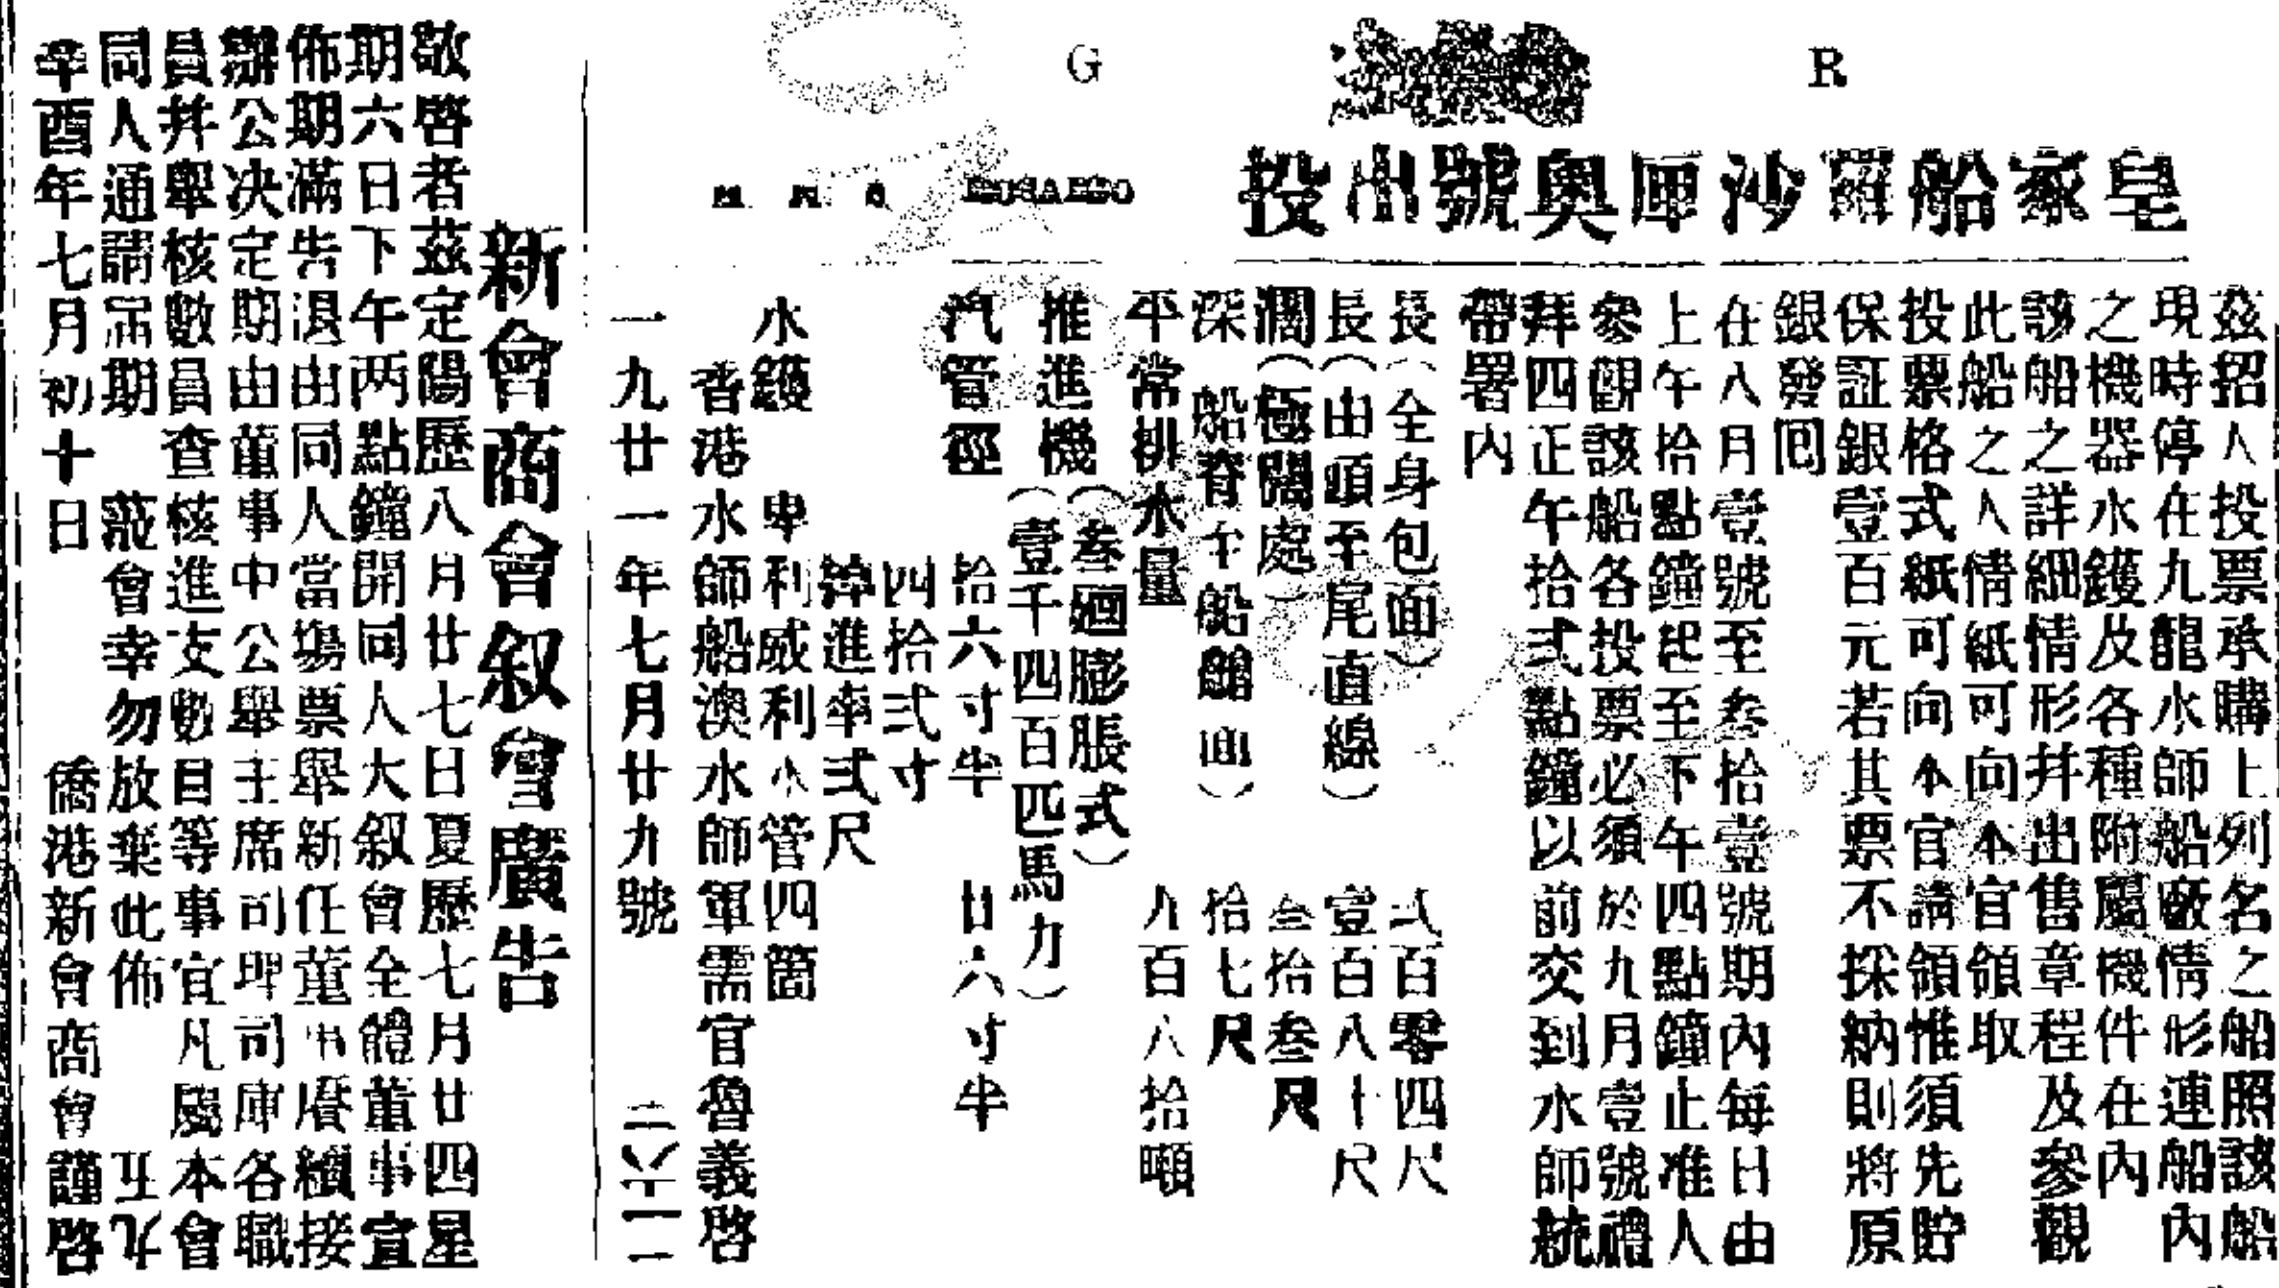 G R
皇家船羅沙厘奧號出投
H M S ROSARIO
茲招人投票承購上列名之船照該船
現時停在九龍水師船廠情形連船內
之機器水鑊及各種附屬機件在內
該船之詳細情形并出售章程及參觀
此船之人情紙可向本官領取
投票格式紙可向本官請領惟須先貯
保証銀壹百元若其票不採納則將原
銀發囘
在八月壹號至叁拾壹號期內每日由
上午拾點鐘起至下午四點鐘止准人
參觀該船各投票必須於九月壹號禮
拜四正午拾弍點鐘以前交到水師統
帶署內
長(全身包面) 弍百零四尺
長(由頭至尾直線) 壹百八十尺
濶(極闊處) 叁拾叁尺
深 船脊 船艙面) 拾七尺
平常排水量 九百八拾噸
推進機(叁廻膨脹式)
(壹千四百匹馬力)
汽管徑 拾六寸半 廿六寸半
四拾弍寸
推進率弍尺
水鑊 卑利威利水管四箇
香港水師船澳水師軍需官魯義啓
一九廿一年七月廿九號 二六二一
新會商會叙會廣告
敬啓者茲定陽歷八月廿七日夏歷七月廿四星
期六日下午两點鐘開同人大叙會全體董事宣
佈期滿告退由同人當塲票舉新任董事 續接
辦公决定期由董事中公舉主席司理司庫各職
員并舉核數員查核進支數目等事宜凡屬本會
同人通請屆期 蒞會幸勿放棄此佈
辛酉年七月初十日 僑港新會商會謹啓